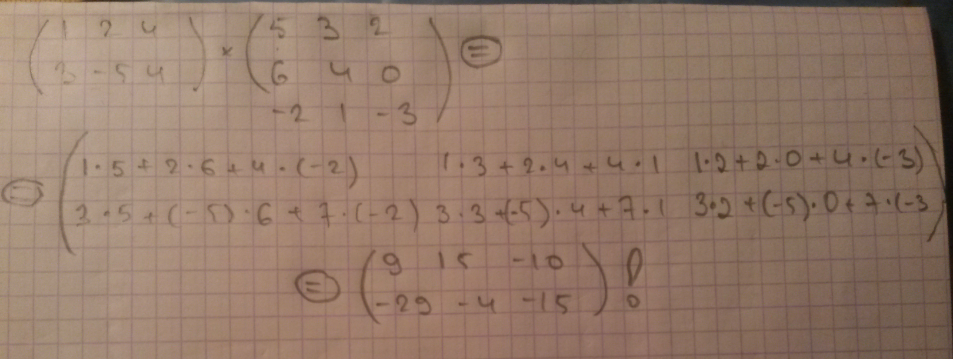 ( 1 2 4 ) × ( 5 3 2 ) =
( 3 -5 4 ) ( 6 4 0 )
-2 1 -3
= ( 1·5+2·6+4·(-2) 1·3+2·4+4·1 1·2+2·0+4·(-3) )
3·5+(-5)·6+7·(-2) 3·3+(-5)·4+7·1 3·2+(-5)·0+7·(-3
= ( 9 15 -10 ) !
( -29 -4 -15 )